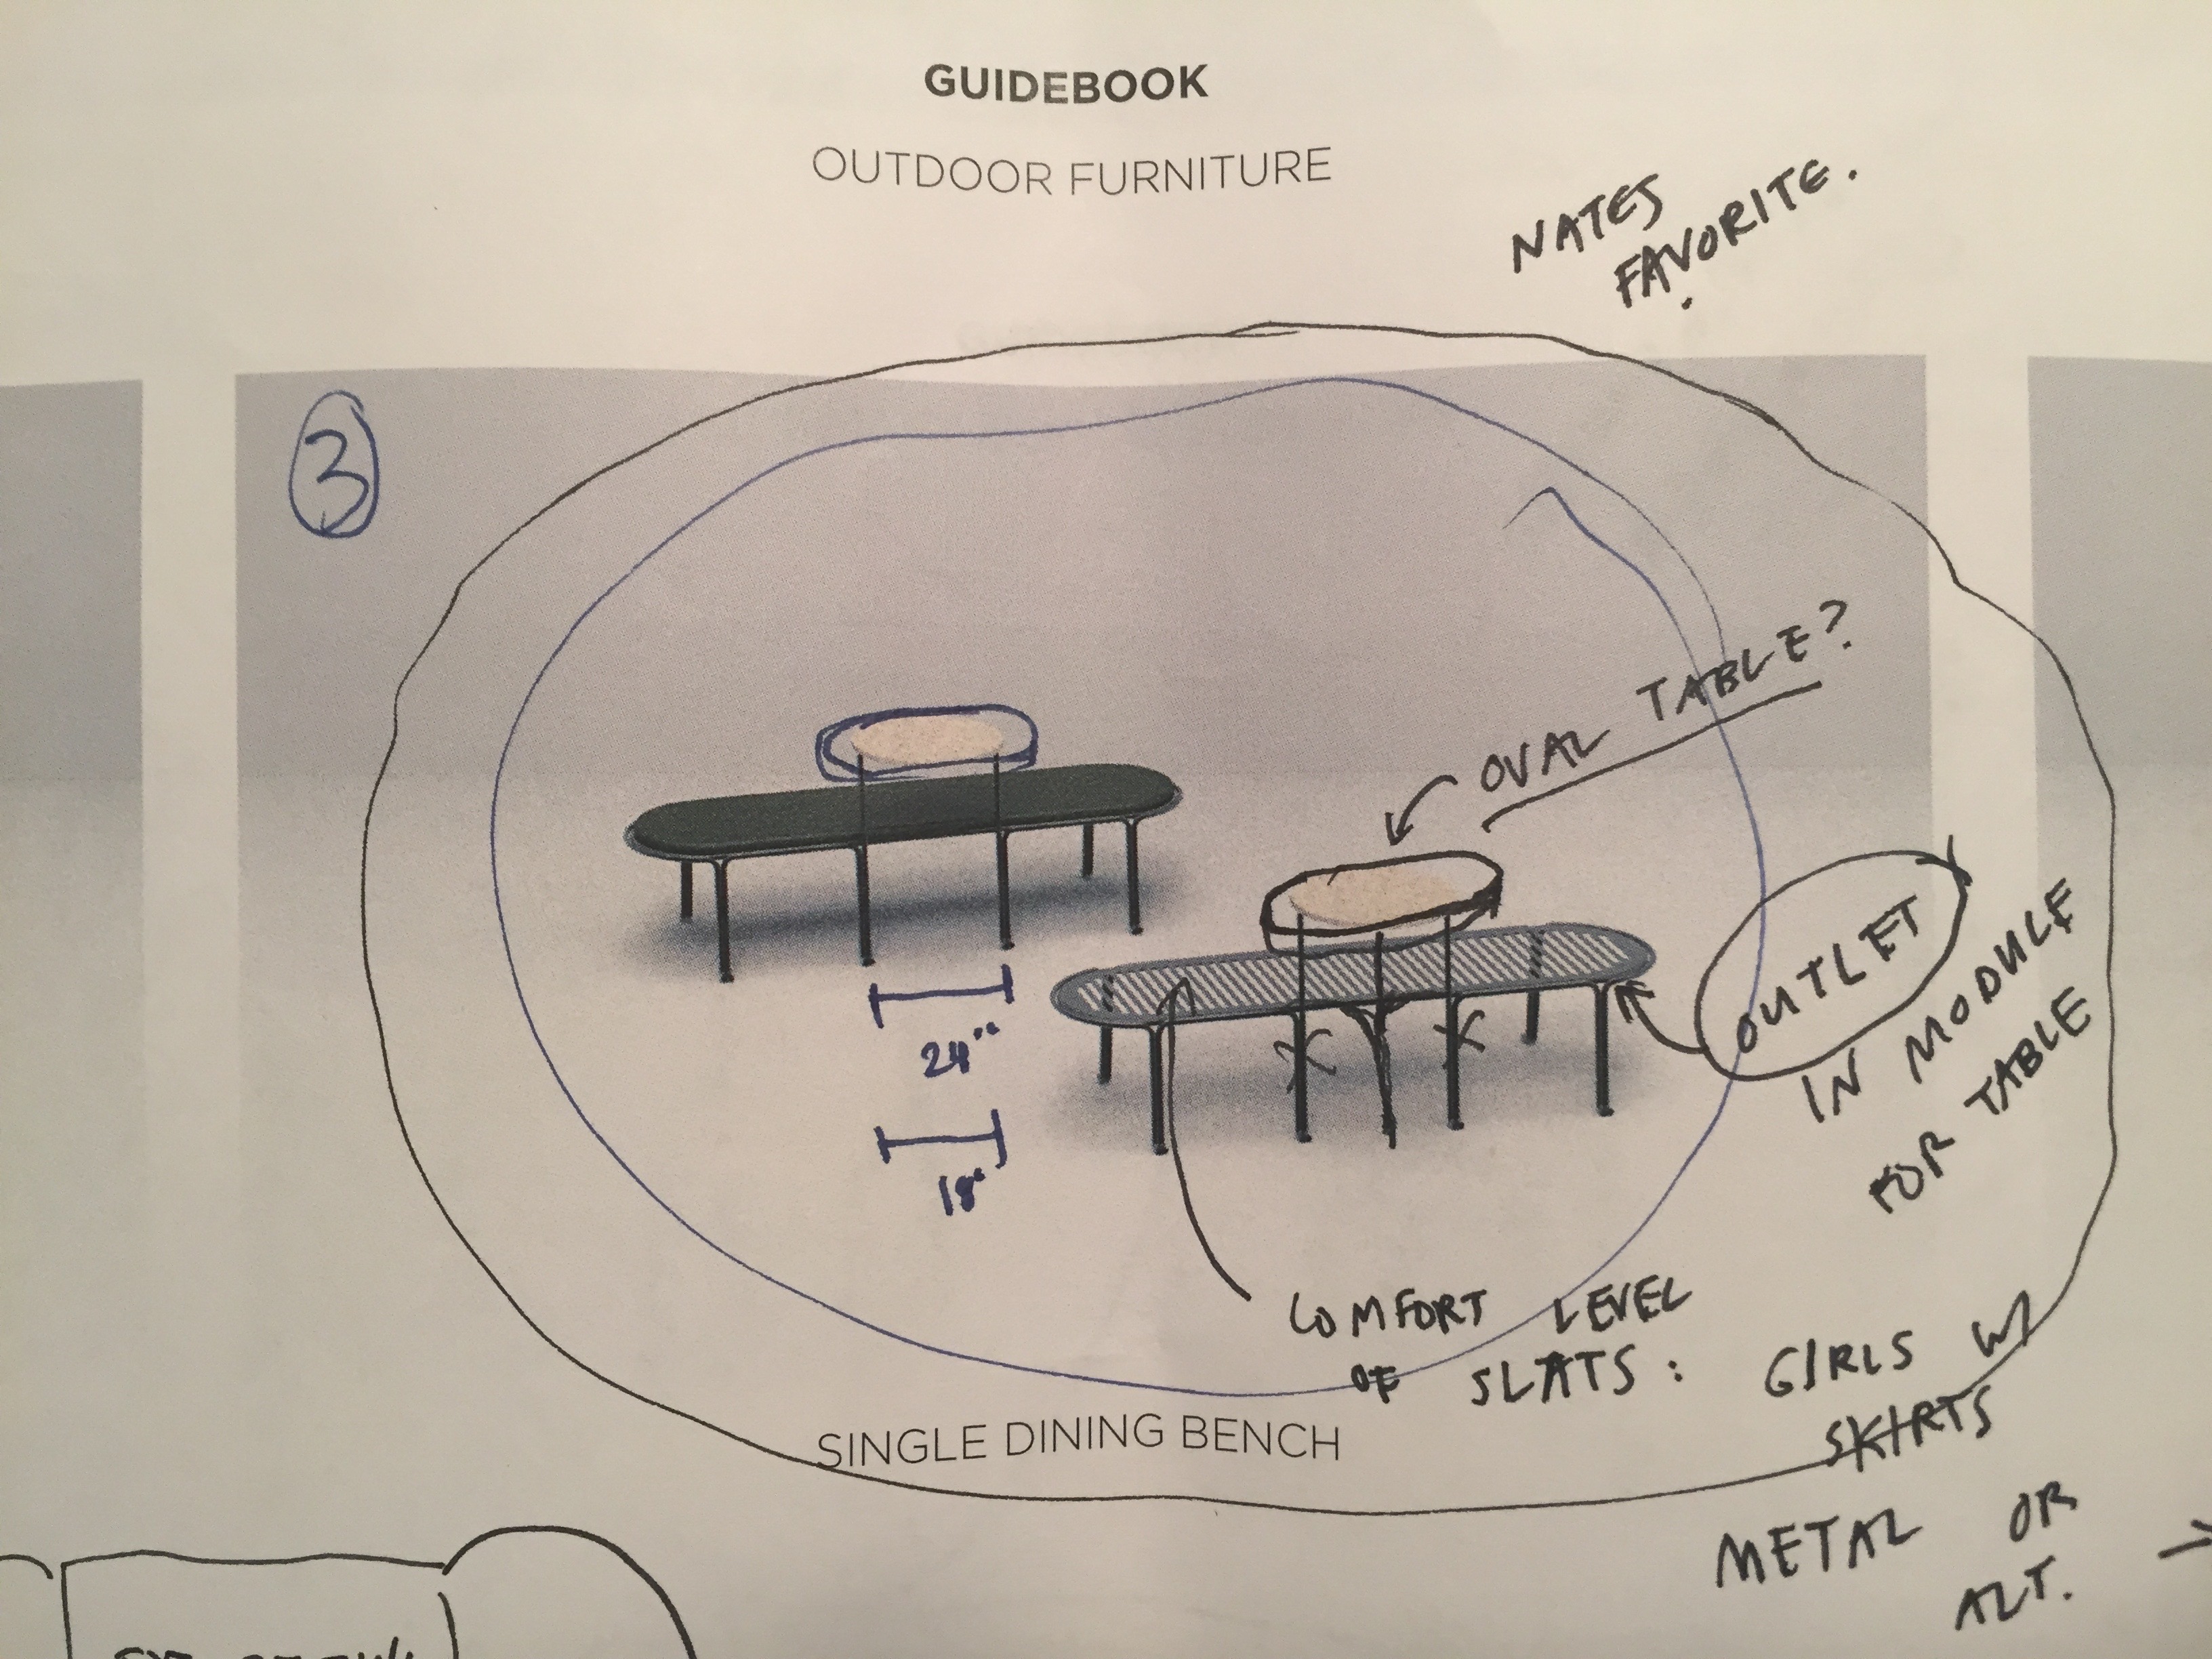 GUIDEBOOK
OUTDOOR FURNITURE
NATES
FAVORITE.
3
OVAL TABLE?
OUTLET
IN MODULE
FOR TABLE
24"
18"
COMFORT LEVEL
OF SLATS: GIRLS W/
SKIRTS
SINGLE DINING BENCH
METAL OR
ALT.